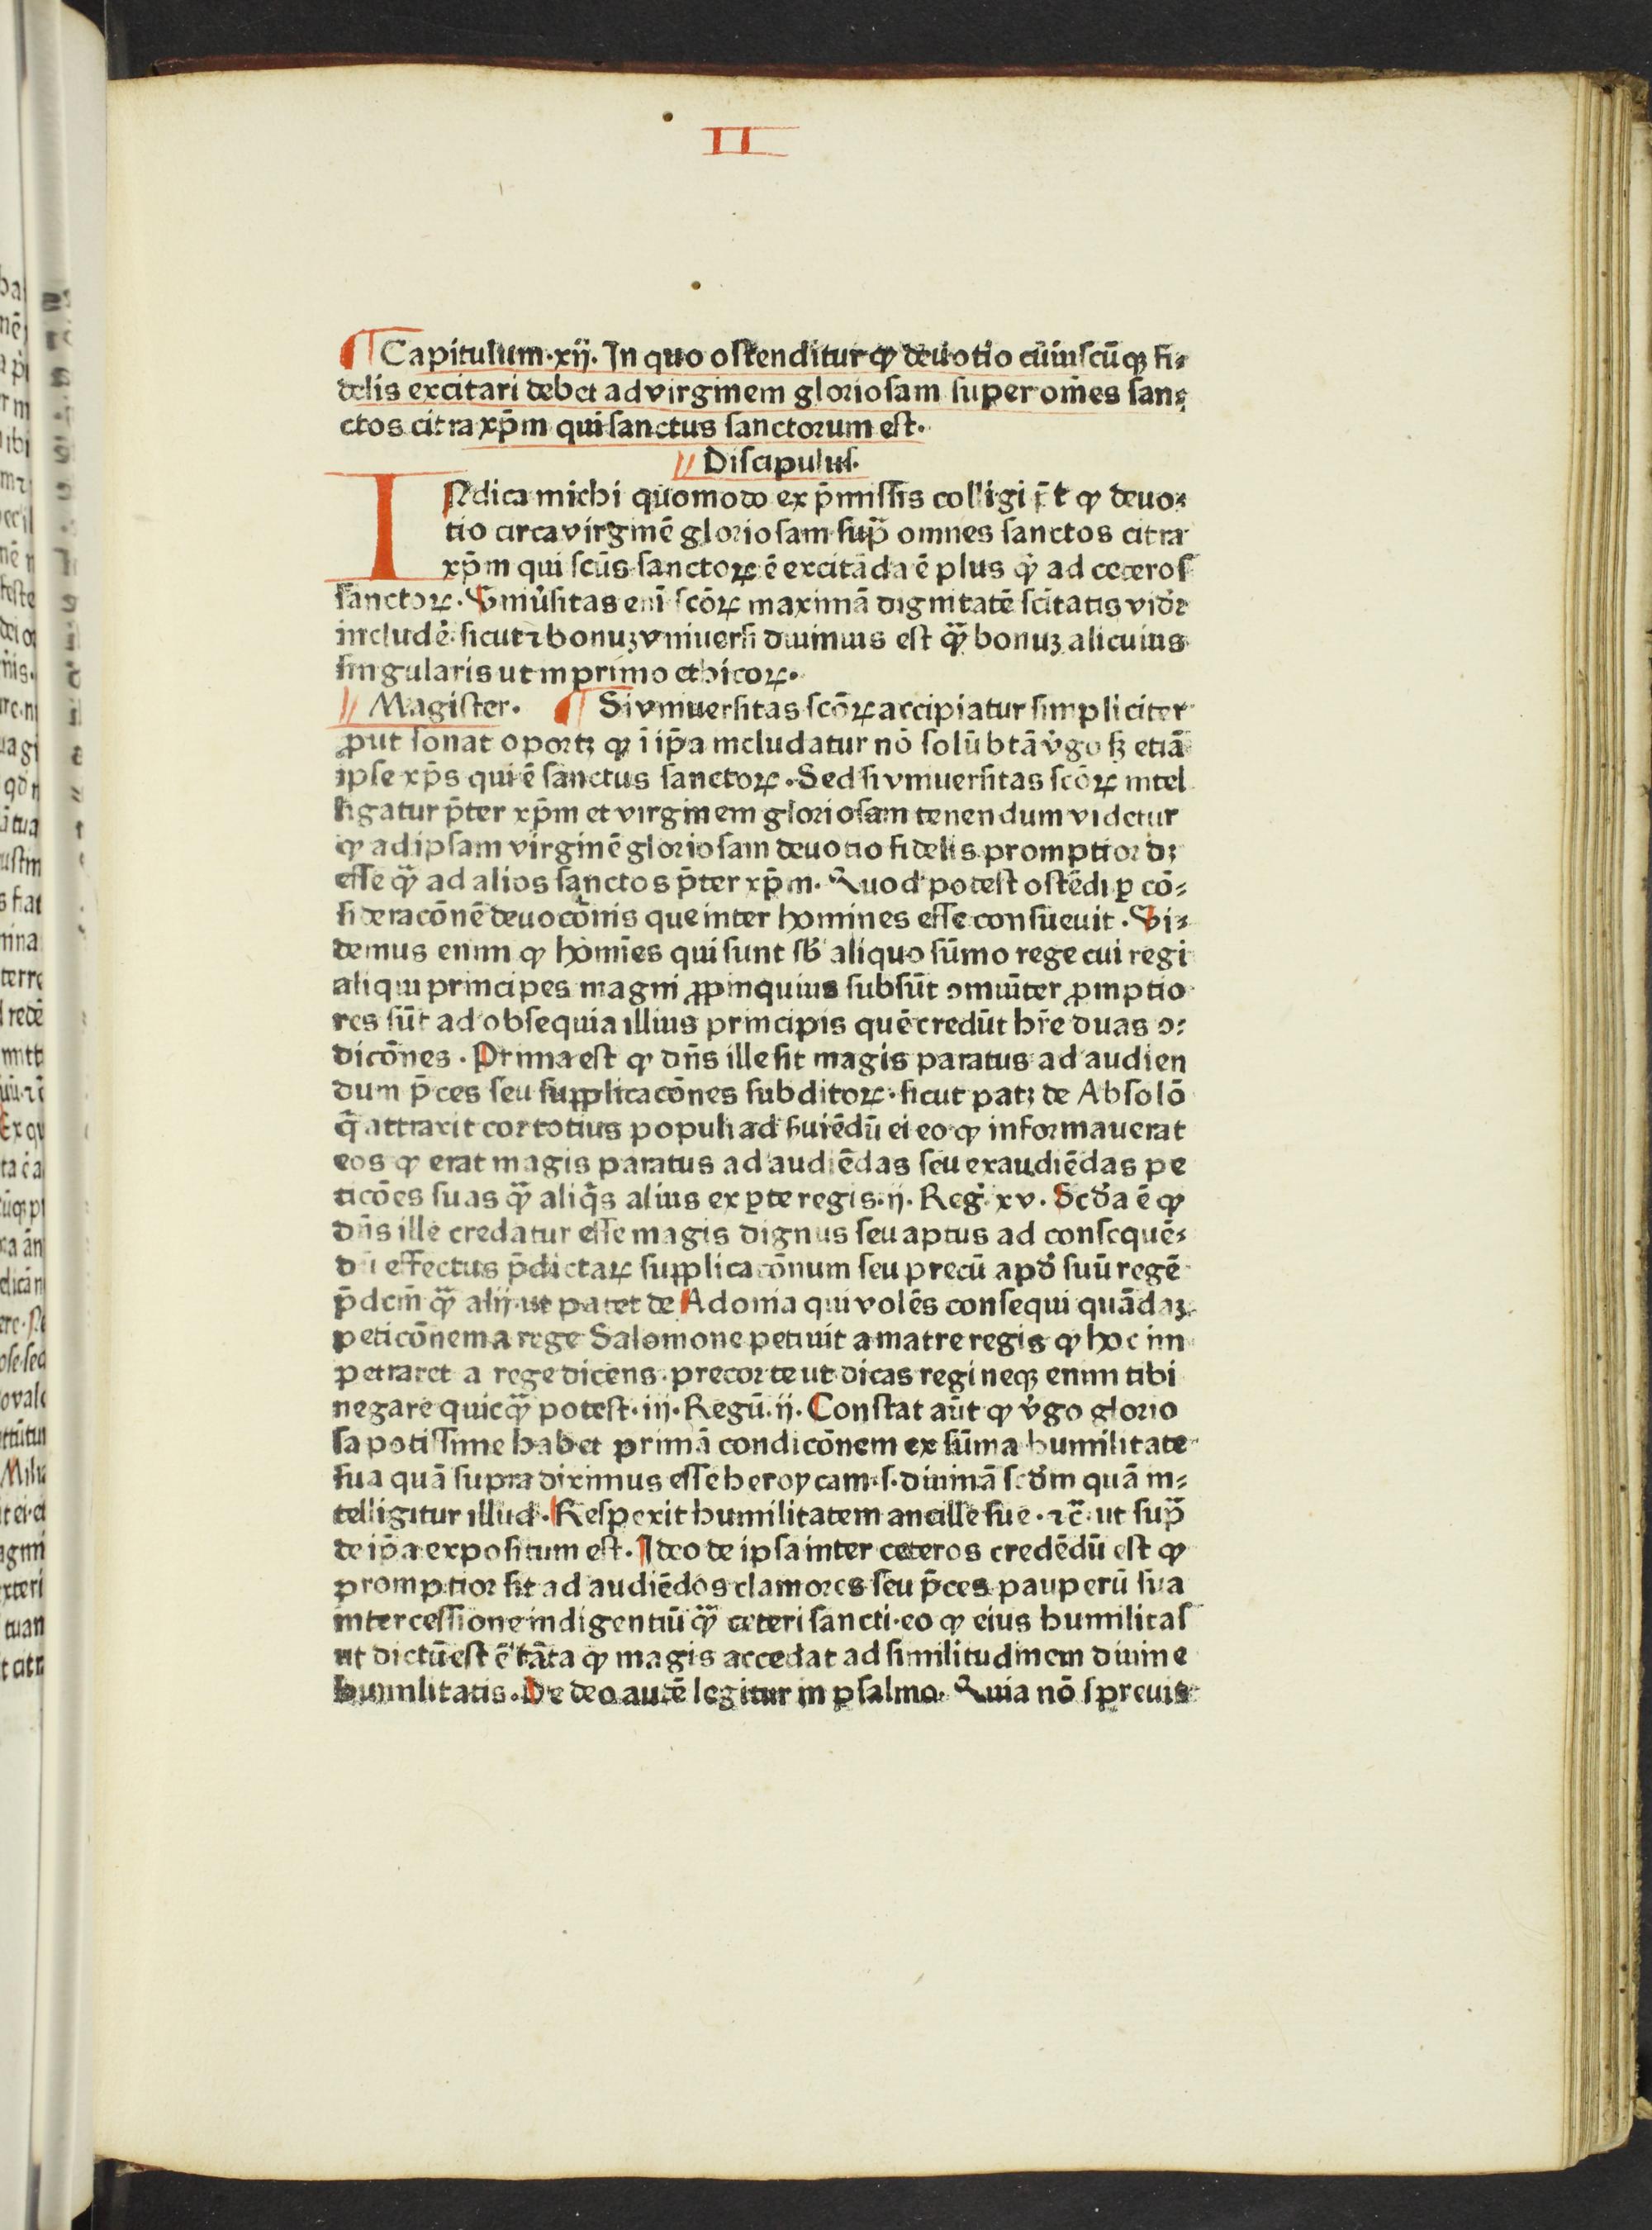 II
¶ Capitulum·xij. In quo ostenditur ꝙ deuotio cuiuscūqꝫ fi⸗
delis excitari debet ad virginem gloriosam super om̄es san⸗
ctos citra xp̄m qui sanctus sanctorum est.
Discipulus.
INdica michi quomodo ex p̄missis colligi pt̄ ꝙ deuo⸗
tio circa virginē gloriosam sup̄ omnes sanctos citra
xp̄m qui scūs sanctoꝝ ē excitāda ē plus qͣ ad ceteros
sanctoꝝ. Vniūsitas eni scōꝝ maximā dignitatē scītatis vidr̄
includē. sicut ⁊ bonuꝫ vniuersi diuinius est qͣ̄ bonuꝫ alicuius
singularis ut in primo ethicoꝝ.
Magister. ¶ Si vniuersitas scōꝝ accipiatur simpliciter
ꝓut sonat oportꝫ ꝙ ī ip̄a includatur nō solū btā v̓go sꝫ etiā
ipse xp̄s qui ē sanctus sanctoꝝ. Sed si vniuersitas scōꝝ intel
ligatur p̄ter xp̄m et virginem gloriosam tenendum videtur
ꝙ ad ipsam virginē gloriosam deuotio fidelis promptior dꝫ
esse qͣ̄ ad alios sanctos p̄ter xp̄m. Quod potest ostēdi ꝑ cō⸗
sideracōnē deuocōnis que inter homines esse consueuit. Vi⸗
demus enim ꝙ homīes qui sunt sb̄ aliquo sūmo rege cui regi
aliqui principes magni ꝓpinquius subsūt ꝯmuīter ꝓmptio
res sūt ad obsequia illius principis quē credūt hr̄e duas ꝯ⸗
dicōnes. Prima est ꝙ dn̄s ille sit magis paratus ad audien
dum p̄ces seu supplicacōnes subditoꝝ. sicut patꝫ de Absolō
q̄ attraxit cor totius populi ad suiēdū ei eo ꝙ informauerat
eos ꝙ erat magis paratus ad audiēdas seu exaudiēdas pe
ticōes suas qͣ̄ aliq̄s alius ex ꝑte regis. ij. Reg̓. xv. Scd̓a ē ꝙ
dn̄s ille credatur esse magis dignus seu aptus ad consequē⸗
dū effectus p̄dictaꝝ supplicacōnum seu precū apd̓ suū regē
p̄dcm̄ qͣ̄ alij. ut patet de Adonia qui volēs consequi quādaꝫ
peticōnem a rege Salomone petiuit a matre regis ꝙ hoc im
petraret a rege dicens. precor te ut dicas regi neqꝫ enim tibi
negare quicqͣ̄ potest. iij. Regū. ij. Constat aūt ꝙ v̓go glorio
sa potissime habet primā condicōnem ex sūma humilitate
sua quā supra diximus esse heroycam. s. diuinā scd̓m quā in⸗
telligitur illud. Respexit humilitatem ancille sue. ⁊c̄. ut sup̄
de ip̄a expositum est. Ideo de ipsa inter ceteros credēdū est ꝙ
promptior sit ad audiēdos clamores seu p̄ces pauperū sua
intercessione indigentiū qͣ̄ ceteri sancti. eo ꝙ eius humilitas
ut dictū est ē tāta ꝙ magis accedat ad similitudinem diuine
humilitatis. De deo autē legitur in psalmo. Quia nō spreuis